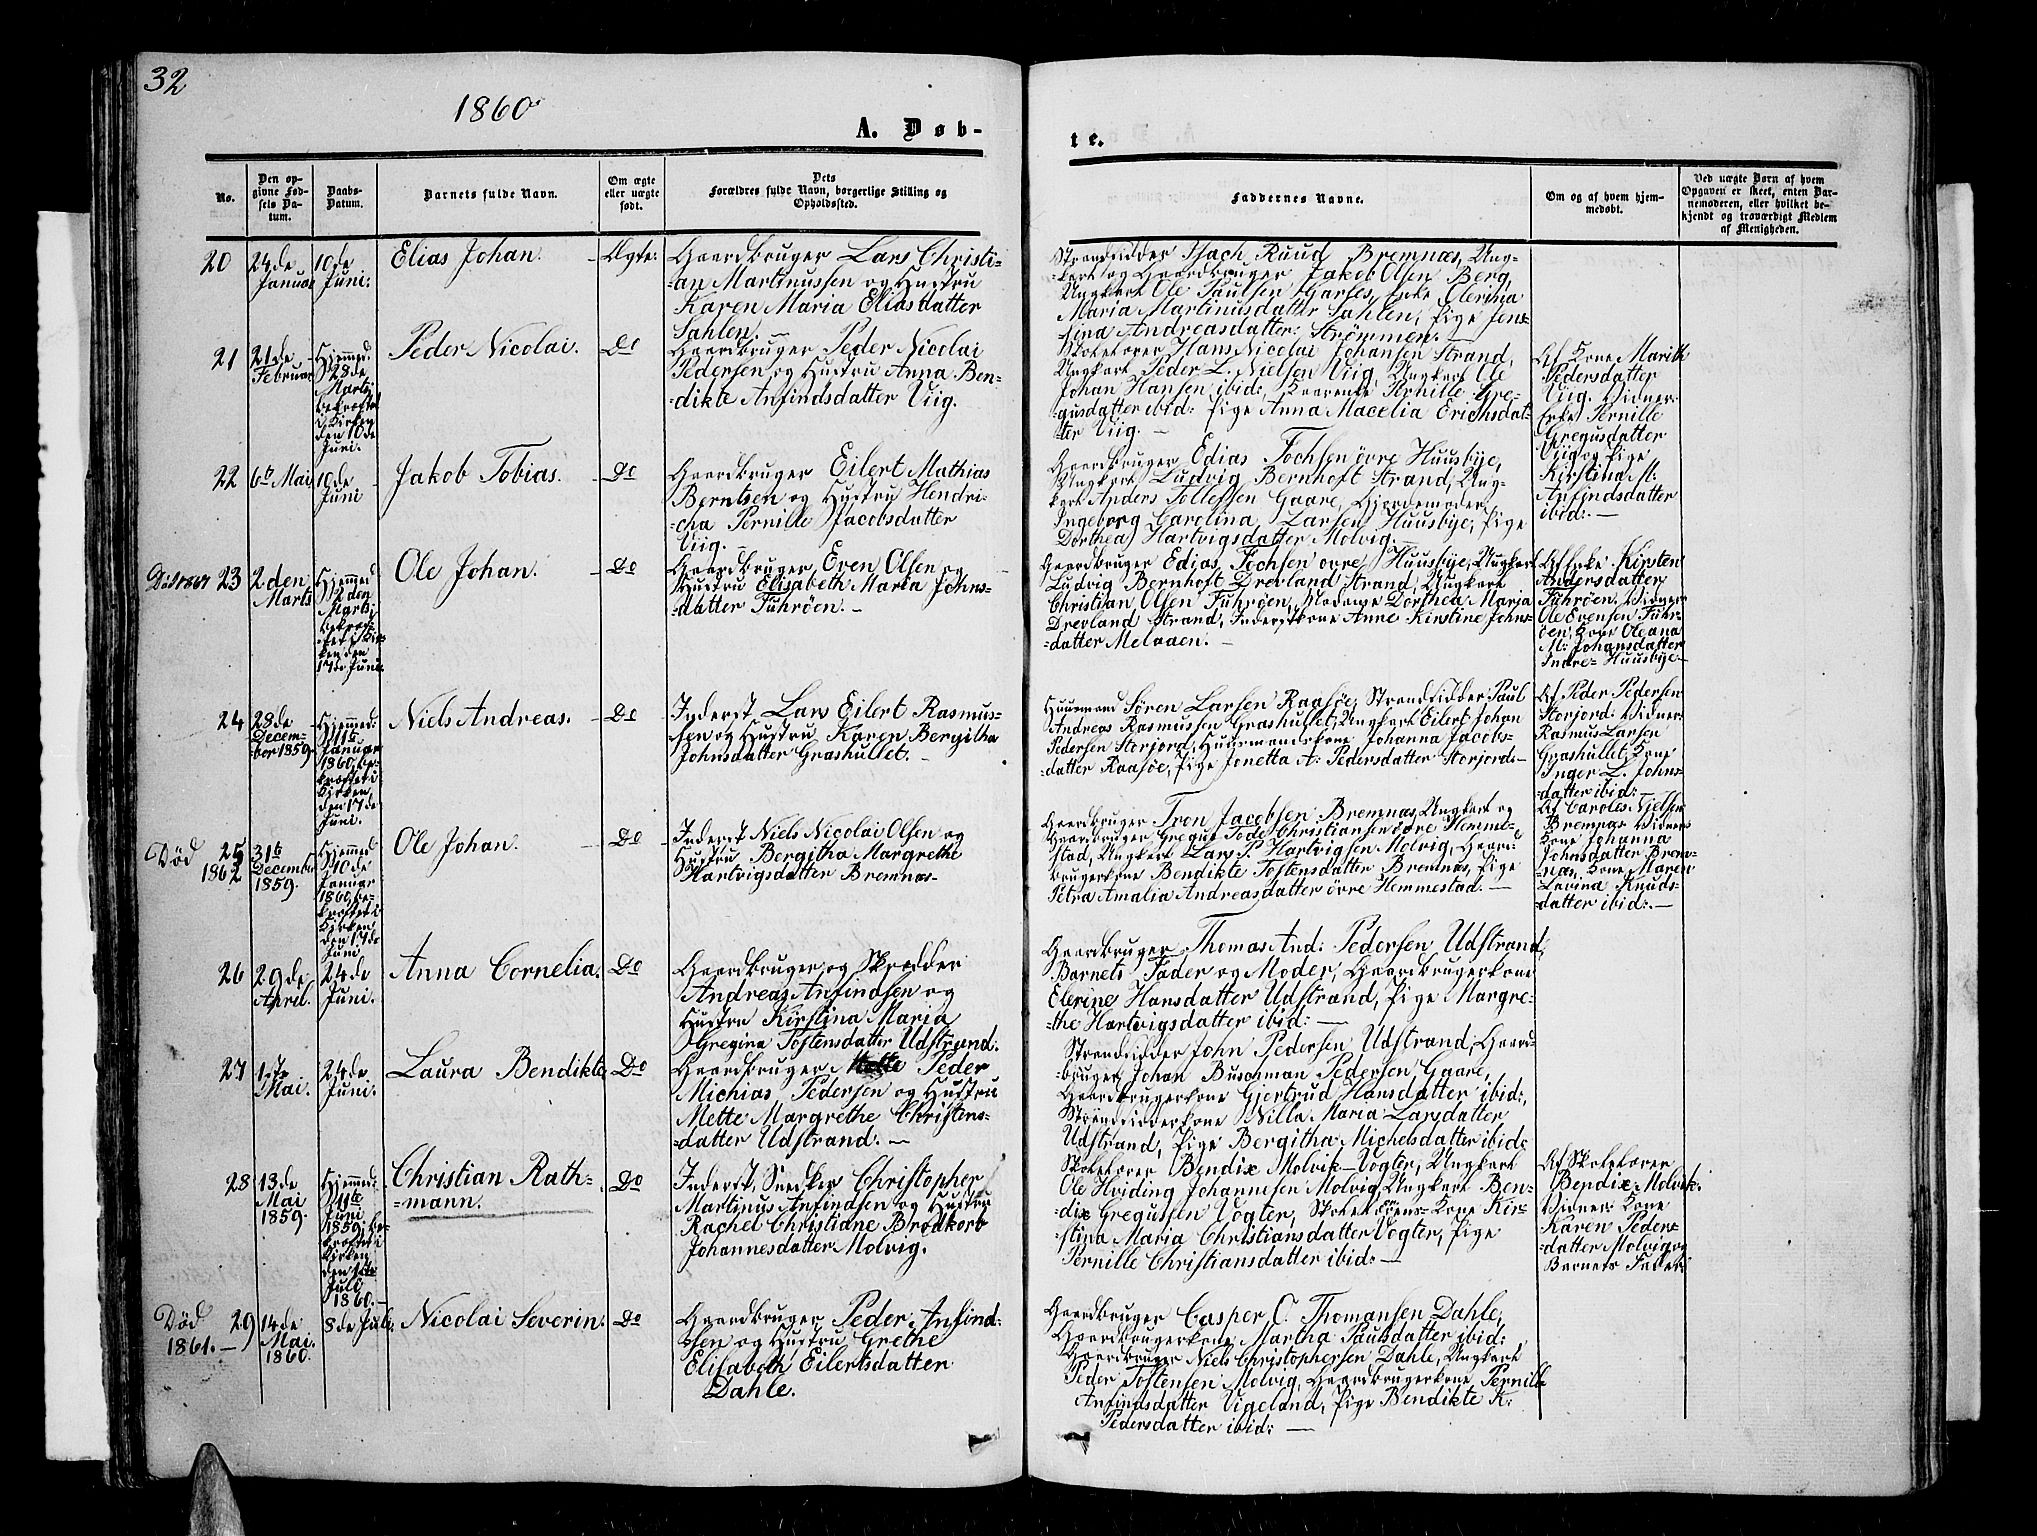 32
1860
A. Døb-
te.
No.
Den op-
givne Fød-
sels Da-
tum.
Daabs-
Datum.
Barnets fulde Navn.
Om ægte
eller uægte
født.
Dets
Forældres fulde Navn, borgerlige Stilling og
Opholdssted.
Faddernes Navne.
Om og af hvem hjem-
medøbt.
Ved uægte Børn af hvem
Opgaven er skeet, enten Bar-
nemoderen, eller hvilket be-
kjendt og troværdigt Medlem
af Menigheden.
20
24de
Januar
10de
Juni.
Elias Johan.
Ægte.
Gaardbruger Lars Christi-
-an Martinussen og Hustru
Karen Maria Eliasdatter
Sahlen. —
Strandsidder Isach Ruud Bremnæs, Ung-
-karl og Gaardbruger Jakob Olsen Berg,
Ungkarl Ole Paulsen Enke Olerina
Maria Martinusdatter Sahlen, Pige Jen-
sina Andreasdatter Strømmen. —
21
21de
Februar
Hjemmed.
28de
Marts,
bekræftet
i Kirken
den 10de
Juni.
Peder Nicolai.
Do
Gaardbruger Peder Nicolai
Pedersen og Hustru Anna Ben-
-dikte Anfindsdatter Viig.
Skolelærer Hans Nicolai Johansen Strand,
Ungkarl Peder L. Nielsen Viig, Ungkarl Ole
Johan Hansen ibid:, Pernille Gre-
gusdatter ibid: Pige Anna Macelia Erichsdat-
ter Viig. —
Af Kone Marith
Pedersdatter
Viig. Vidner:
Enke Pernille
Gregusdatter
Viig og Pige
Kirstina M.
Anfindsdatter
ibid: —
22
6te Mai
10de
Juni
Jakob Tobias.
Do
Gaardbruger Eilert Mathias
Berntsen og Hustru Hendri-
-cha Pernille Jacobsdatter
Viig. —
Gaardbruger Edias Tochsen øvre Huusbye,
Ungkarl Ludvig Bernhoft Strand, Ung-
karl Anders Tollefsen Gaare, Gjordemoder
Ingeborg Carolina Larsen Huusbye, Pige
Dorthea Hartvigsdatter Molvig. —
Død 1867
23
2den
Marts
Hjemmed
2den
Marts,
bekræf-
-tet i Kir-
ken den
17de Juni.
Ole Johan.
Do
Gaardbruger Even Olsen og
Hustru Elisabeth Maria Johns-
-datter Fuhrøen. —
Gaardbruger Edias Tochsen øvre Huusbye, Ungkarl
Ludvig Bernhoft Drevland Strand, Ungkarl
Christian Olsen Fuhrøen, Madame Dorthea Maria
Drevland Strand, Inderstkone Anne Kirstine Johns-
-datter Melaaen. —
Af Enke Kirsten
Andersdatter
Fuhrøen. Vidner
Ole Evensen Fuhr-
øen, Kone Oleana
M: Johansdatter
Indre- Huusbye —
24
28de
Decem-
ber 1859.
Hjemmed:
11te
Januar
1860, be-
kræftet i
Kirken
den 17de
Juni.
Niels Andreas.
Do
Inderst Lars Eilert Rasmus-
sen og Hustru Karen Bergitha
Johnsdatter Grashullet. —
Huusmand Sören Larsen Raasøe, Strandsidder Paul
Andreas Rasmussen Grashullet, Ungkarl Eilert Johan
Pedersen Storjord, Huusmandskone Johanna Jacobs-
datter Raasøe, Pige Jonetta A: Pedersdatter Storjord: —
Af Peder Pedersen
Storjord: Vidner:
Rasmus Larsen
Grashullet, Kone
Inger L. Johns-
datter ibid: —
Død
1862
25
31te
December
1859.
Hjemmed
10de
Januar
1860, be-
kræftet i
Kirken
den 17de
Juni
Ole Johan.
Do
Inderst Niels Nicolai Olsen og
Hustru Bergitha Margrethe
Hartvigsdatter Bremnæs —
Gaardbruger Tron Jacobsen Bremnæs, Ungkarl og
Gaardbruger Gregus Tode Christiansen øvre Hemme-
stad, Ungkarl Lars P. Hartvigsen Molvig, Gaard-
brugerkone Bendikte Tostensdatter Bremnæs, Pige
Petra Amalia Andreasdatter øvre Hemmestad. —
Af Caroles Nielsen
Bremnæs Vidner
Kone Johanna
Johnsdatter Brem-
næs, Kone Maren
Lovina Knuds-
datter ibid: —
26
29de
April.
24de
Juni.
Anna Cornelia.
Do
Gaardbruger og Skrædder
Andreas Anfindsen og
Hustru Kirstina Maria
Gregina Tostensdatter Udstrand.
Gaardbruger Thomas And: Pedersen Udstrand,
Barnets Fader og Moder, Gaardbrugerkone
Elerine Hansdatter Udstrand, Pige Margre-
-the Hartvigsdatter ibid: —
27
1ste
Mai.
24de
Juni.
Laura Bendikte.
Do
Gaardbruger Peder
Michias Pedersen og Hustru
Mette Margrethe Christens-
-datter Udstrand. —
Strandsidder John Pedersen Udstrand, Gaard-
-bruger Johan Buschman Pedersen Gaare,
Gaardbrugerkone Gjertrud Hansdatter ibid:,
Strandsidderkone Nilla Maria Larsdatter
Udstrand, Pige Bergitha Michelsdatter ibid:
28
13de
Mai
1859.
Hjemmed:
11te
Juni
1859, be-
kræftet i
Kirken
den 1ste
Juli
1860. —
Christian Rath-
-mann.
Do
Inderst, Snedker Christopher
Martinus Anfindsen og Hustru
Rachel Christiane Brodkorb
Johannesdatter Molvig.
Skolelærer Bendix Molvik-Vogter, Ungkarl
Ole Hviding Johannesen Molvig, Ungkarl Ben-
dix Gregusen Vogter, Skolelærens Kone Kir-
stina Maria Christiansdatter Vogter, Pige
Pernille Christiansdatter ibid: —
Af Skolelærer
Bendix Molvik.
Vidner: Kone
Karen Peders-
datter Molvig og
Barnets Fader.
Død
1861. —
29
14de
Mai.
1860.
8de Juli.
Nicolai Severin.
Do
Gaardbruger Peder Anfind-
sen og Hustru Grethe
Elisabeth Eilertsdatter
Dahle.
Gaardbruger Casper C. Thomassen Dahle,
Gaardbrugerkone Martha Paulsdatter ibid:
Gaardbruger Niels Christophersen Dahle, Ungkarl
Peder Tostensen Molvig, Gaardbrugerkone Pernille
Anfindsdatter Vigeland, Pige Bendikte K:
Pedersdatter ibid: —